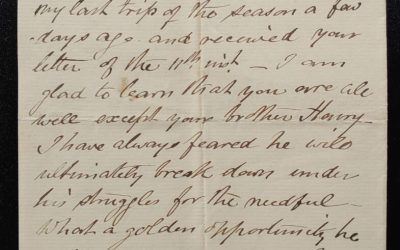 my last trip of the season a few
days ago and received your
letter of the 11th inst — I am
glad to learn that you are all
well except your brother Henry
I have always feared he will
ultimately break down under
his struggles for the needful —
What a golden opportunity he